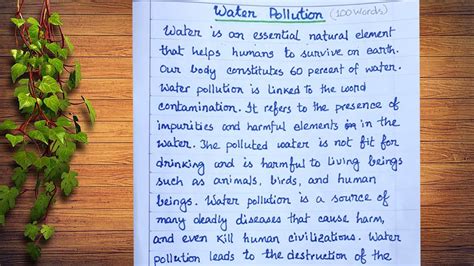 Water Pollution (100 Words)
Water is an essential natural element
that helps humans to survive on earth.
Our body constitutes 60 percent of water.
Water pollution is linked to the word
contamination. It refers to the presence of
impurities and harmful elements in in the
water. The polluted water is not fit for
drinking and is harmful to living beings
such as animals, birds, and human
beings. Water pollution is a source of
many deadly diseases that cause harm,
and even kill human civilizations. Water
pollution leads to the destruction of the